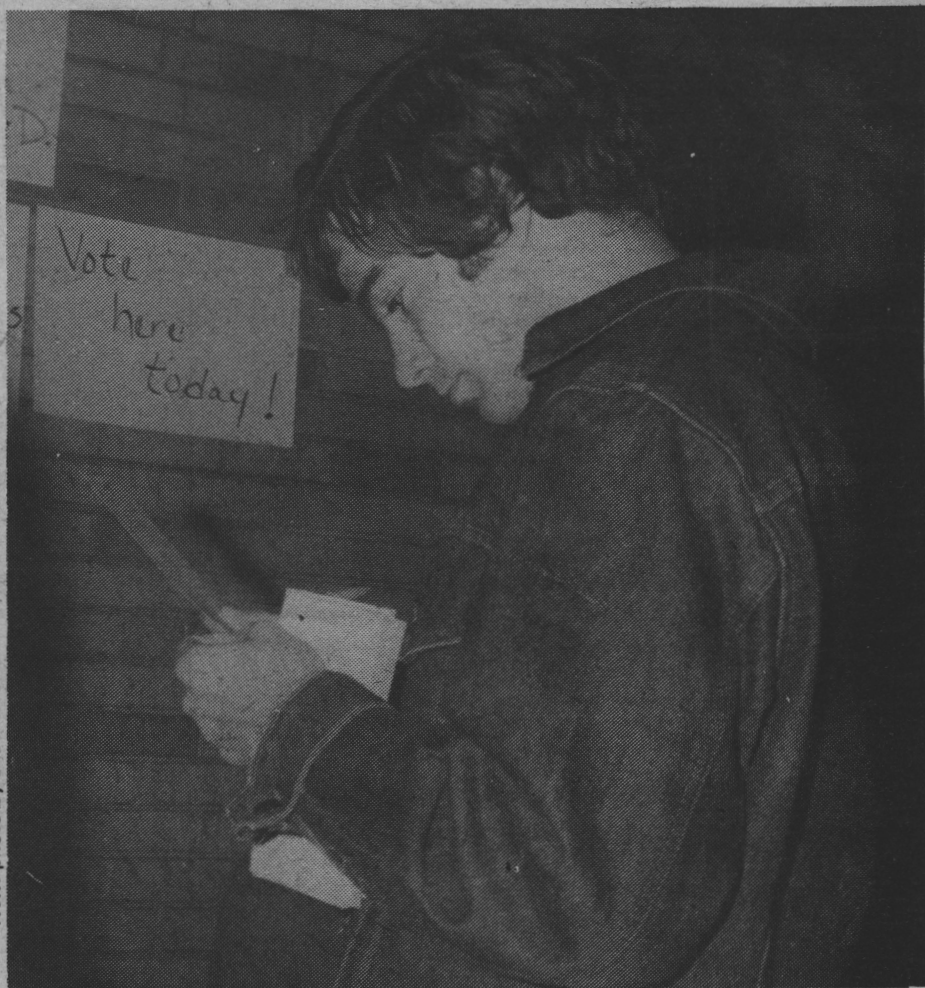 D.
s
Vote
here
today!